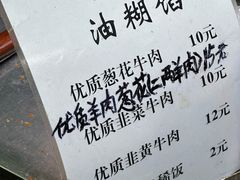 油糊饀
优质葱花牛肉 10元
优质羊肉葱花(二两鲜肉)15元
优质韭菜牛肉 10元
优质韭黄牛肉 12元
2元